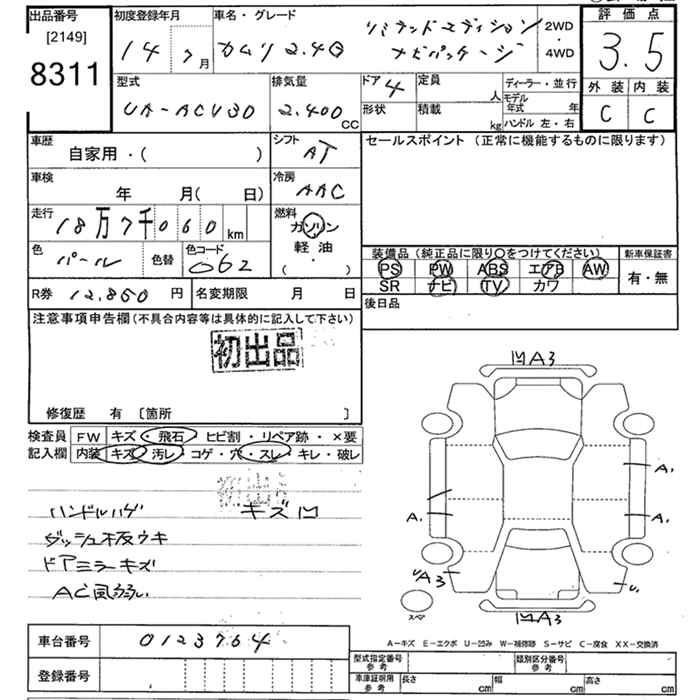 出品番号
[2149]
8311
初度登録年月
14 年 7 月
車名・グレード
カムリ 2.4G
リミテッドエディション
ナビパッケージ
2WD
・
4WD
評価点
3.5
外装 内装
C C
型式
UA-ACV30
排気量
2.400 CC
ドア 4
形状
定員
人
積載
kg
ディーラー・並行
モデル
年式 年
ハンドル 左・右
車歴
自家用・( )
シフト
AT
セールスポイント (正常に機能するものに限ります)
車検
年 月( 日)
冷房
AAC
走行
18万7千060 km
燃料
ガソリン
軽油
( ・ )
色
パール
色替
色コード
062
装備品 (純正品に限り○をつけてください)
PS PW ABS エアB AW
SR ナビ TV カワ
新車保証書
有・無
R券 12,850 円
名変期限 月 日
後日品
注意事項申告欄 (不具合内容等は具体的に記入して下さい)
初出品
修復歴 有 〔箇所 〕
検査員
記入欄
FW キズ・飛石・ヒビ割・リペア跡・×要
内装 キズ・汚レ・コゲ・穴・スレ・キレ・破レ
初出品
ハンドルハゲ キズ凹
ダッシュ板ウキ
ドアミラーキズ
AC風弱い
凹A3
A1
A1 A1
UA3
U1
スペア
凹A3
A-キズ E-エクボ U-凹み W-補修跡 S-サビ C-腐食 XX-交換済
車台番号 0123764
登録番号
型式指定番号
参考
類別区分番号
参考
車庫証明用
参考
長さ cm 幅 cm 高さ cm